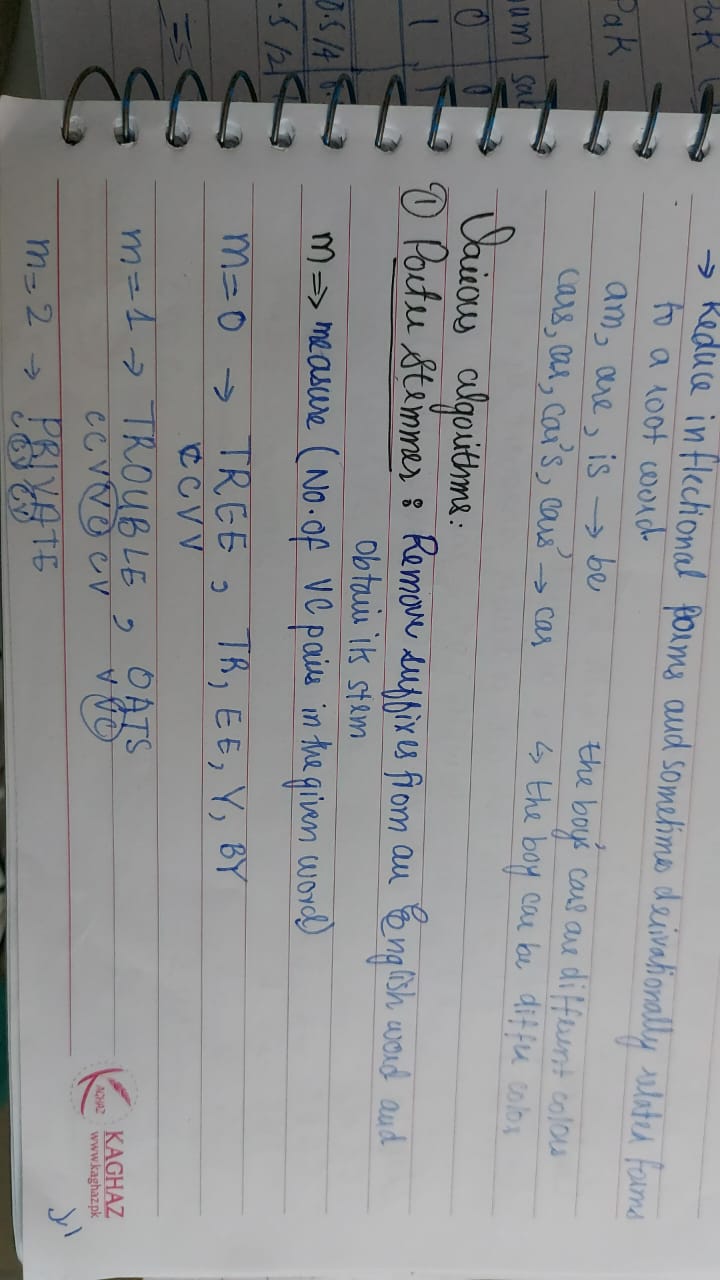 → Reduce inflectional forms and sometimes derivationally related forms
to a root word
am, are, is → be
the boy's cars are different colors
cars, car, car's, cars' → car
↳ the boy car be differ color
Various algorithms:
① Porter Stemmer: Remove suffixes from an English word and
obtain its stem
m => measure (No. of VC pairs in the given word)
m=0 → TREE, TR, EE, Y, BY
CCVV
m=1 → TROUBLE, OATS
CCVVCCV VVC
m=2 → PRIVATE
KAGHAZ
www.kaghaz.pk
Pak
num
0 0
1 1
0.5/4
.5/2